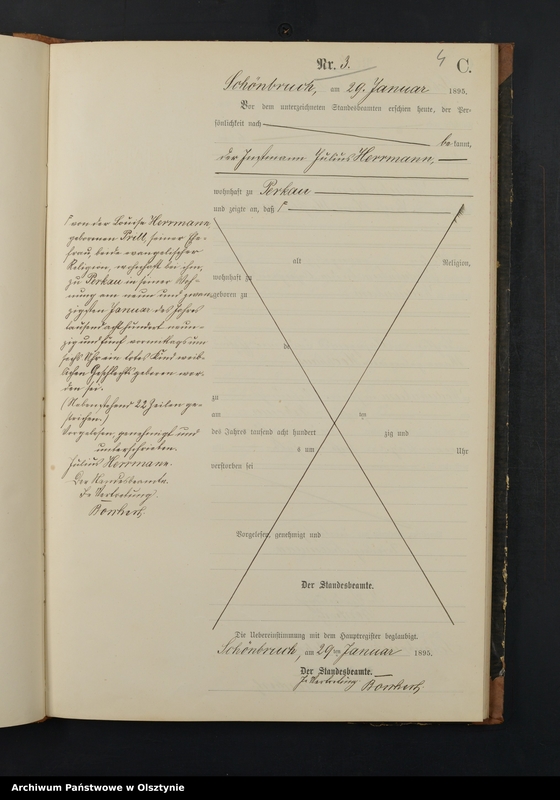 4
Nr. 3.
C.
Schönbruch, am 29. Januar 1895.
Vor dem unterzeichneten Standesbeamten erschien heute, der Per-
sönlichkeit nach
bekannt,
der Instmann Julius Herrmann,
wohnhaft zu Perkau
und zeigte an, daß
von der Louise Herrmann
geborenen Prill, seiner Ehe-
frau, beide evangelischer
Religion, wohnhaft bei ihm,
zu Perkau in seiner Woh-
nung am neun und zwan-
zigsten Januar des Jahres
tausend acht hundert neun-
zig und fünf vormittags um
sechs Uhr ein totes Kind weib-
lichen Geschlechts geboren wor-
den sei.
(Nebenstehend 22 Zeilen ge-
strichen.)
Vorgelesen, genehmigt und
unterschrieben.
Julius Herrmann.
Der Standesbeamte.
In Vertretung.
alt
Religion,
wohnhaft zu
geboren zu
de
zu
am
ten
des Jahres tausend acht hundert zig und
s um Uhr
verstorben sei
Vorgelesen, genehmigt und
Der Standesbeamte.
Die Uebereinstimmung mit dem Hauptregister beglaubigt.
Schönbruch, am 29ten Januar 1895.
Der Standesbeamte.
In Vertretung
Archiwum Państwowe w Olsztynie